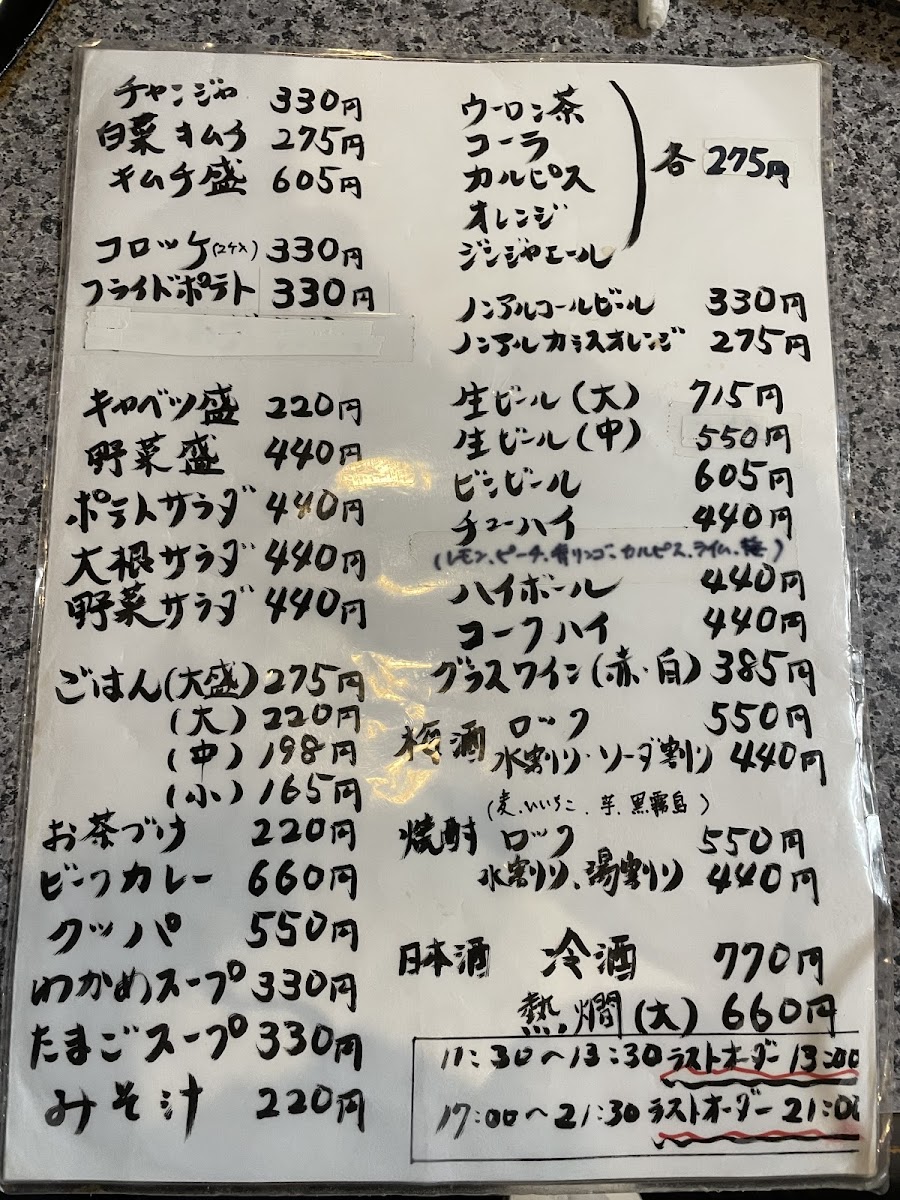 チャンジャ 330円
白菜キムチ 275円
キムチ盛 605円
コロッケ(2ケ入) 330円
フライドポテト 330円
キャベツ盛 220円
野菜盛 440円
ポテトサラダ 440円
大根サラダ 440円
野菜サラダ 440円
ごはん(大盛) 275円
(大) 220円
(中) 198円
(小) 165円
お茶づけ 220円
ビーフカレー 660円
クッパ 550円
わかめスープ 330円
たまごスープ 330円
みそ汁 220円
ウーロン茶
コーラ
カルピス
オレンジ
ジンジャエール
各 275円
ノンアルコールビール 330円
ノンアルカシスオレンジ 275円
生ビール(大) 715円
生ビール(中) 550円
ビンビール 605円
チューハイ 440円
(レモン、ピーチ、青リンゴ、カルピス、ライム、梅)
ハイボール 440円
コークハイ 440円
グラスワイン(赤・白) 385円
梅酒 ロック 550円
水割り・ソーダ割り 440円
(麦、いいちこ、芋、黒霧島)
焼酎 ロック 550円
水割り、湯割り 440円
日本酒 冷酒 770円
熱燗(大) 660円
11:30〜13:30 ラストオーダー 13:00
17:00〜21:30 ラストオーダー 21:00